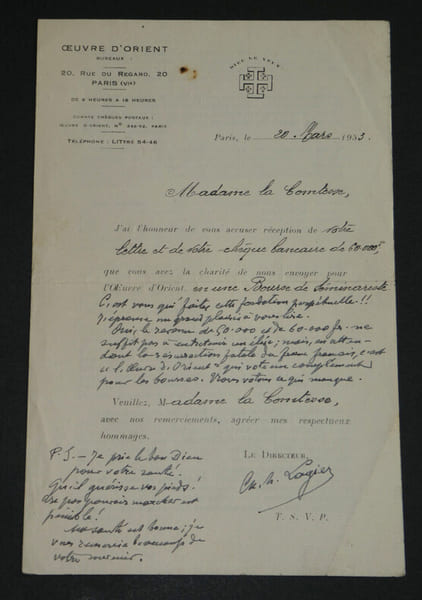 ŒUVRE D'ORIENT
BUREAUX :
20, RUE DU REGARD, 20
PARIS (VIe)
DE 9 HEURES A 18 HEURES
COMPTE CHÈQUES POSTAUX :
ŒUVRE D'ORIENT, N° PARIS
TÉLÉPHONE : LITTRÉ 54-46
DIEU LE VEUT
Paris, le 20 Mars 1953.
Madame la Comtesse,
J'ai l'honneur de vous accuser réception de votre
lettre et de votre chèque bancaire de 60.000f
que vous avez la charité de nous envoyer pour
l'Œuvre d'Orient en une Bourse de Séminariste
C'est vous qui faites cette fondation perpétuelle !!
J'éprouve un grand plaisir à vous lire.
Oui, le revenu de 50.000 et de 60.000 fr. ne
suffit pas à entretenir un élève ; mais, en atten-
dant la fatale du franc français, c'est
l'Œuvre d'Orient qui vote un complément
pour les bourses. Nous votons ce qui manque.
Veuillez, Madame la Comtesse,
avec nos remerciements, agréer mes respectueux
hommages.
LE DIRECTEUR,
Ch. Lagier
T. S. V. P.
P.S. - Je prie le bon Dieu
pour votre santé.
Qu'il guérisse vos pieds !
ne pas pouvoir marcher est
pénible !
Ma santé est bonne ; je
vous remercie beaucoup de
votre souvenir.